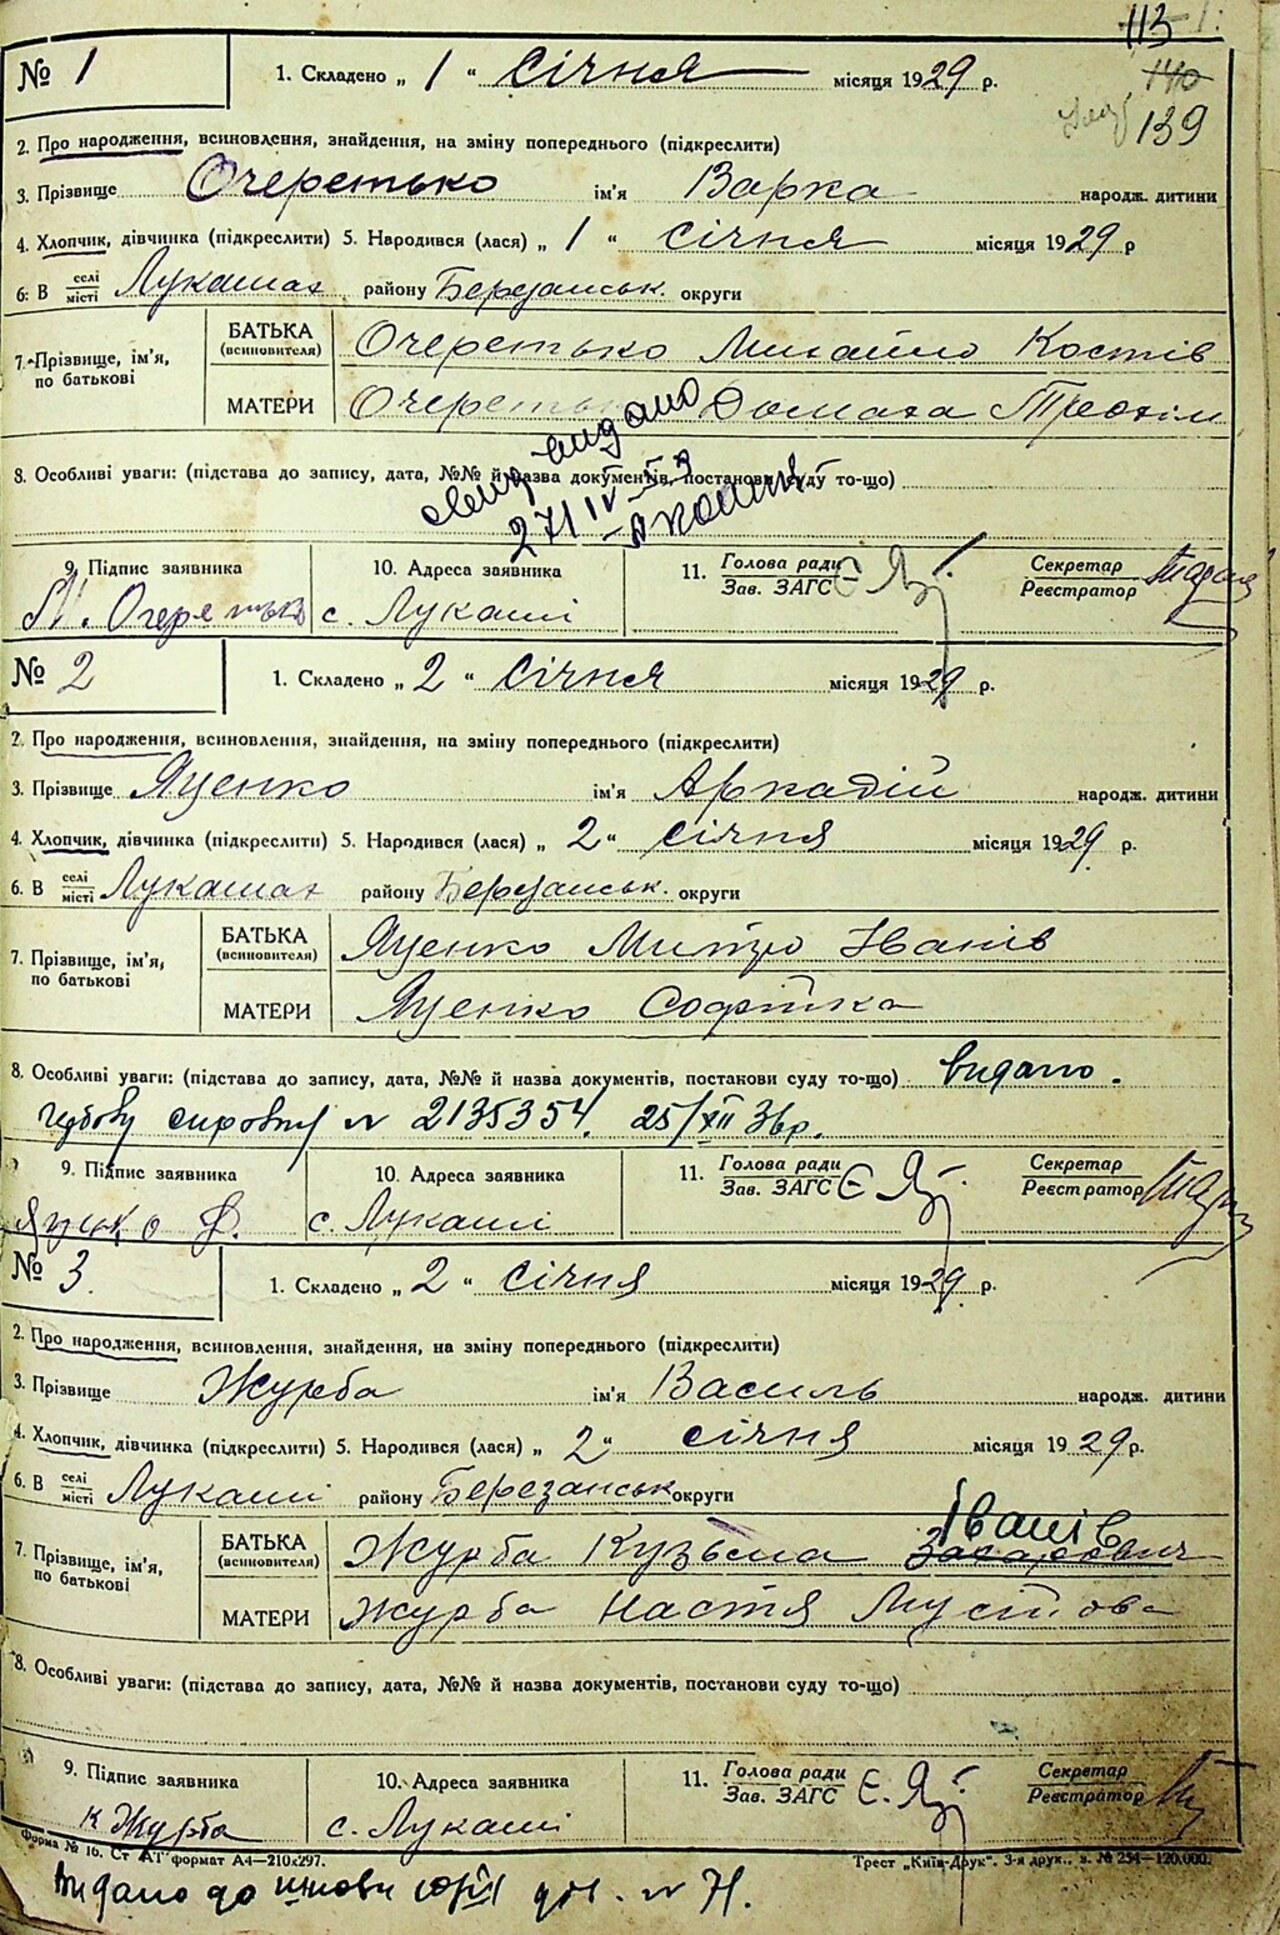 113
140
139
№ 1
1. Складено „ 1 “ січня місяця 1929 р.
2. Про народження, всиновлення, знайдення, на зміну попереднього (підкреслити)
3. Прізвище Очеретько ім'я Варка народж. дитини
4. Хлопчик, дівчинка (підкреслити) 5. Народився (лася) „ 1 “ січня місяця 1929 р
6. В селі місті Лукашах району Березанськ. округи
7. Прізвище, ім'я, по батькові
БАТЬКА (всиновителя) Очеретько Михайло Костів
МАТЕРИ Очеретько Домаха
8. Особливі уваги: (підстава до запису, дата, №№ й назва документів, постанови суду то-що)
видано
27/IV
9. Підпис заявника 10. Адреса заявника 11. Голова ради Зав. ЗАГС Секретар Реєстратор
М. Очеретько с. Лукаші
№ 2
1. Складено „ 2 “ січня місяця 1929 р.
2. Про народження, всиновлення, знайдення, на зміну попереднього (підкреслити)
3. Прізвище Яценко ім'я Аркадій народж. дитини
4. Хлопчик, дівчинка (підкреслити) 5. Народився (лася) „ 2 “ січня місяця 1929 р.
6. В селі місті Лукашах району Березанськ. округи
7. Прізвище, ім'я, по батькові
БАТЬКА (всиновителя) Яценко Митро Іванів
МАТЕРИ Яценко Софійка
8. Особливі уваги: (підстава до запису, дата, №№ й назва документів, постанови суду то-що) видано.
№ 2135354. 25/XII 36р.
9. Підпис заявника 10. Адреса заявника 11. Голова ради Зав. ЗАГС Секретар Реєстратор
с. Лукаші
№ 3.
1. Складено „ 2 “ січня місяця 1929 р.
2. Про народження, всиновлення, знайдення, на зміну попереднього (підкреслити)
3. Прізвище Журба ім'я Василь народж. дитини
4. Хлопчик, дівчинка (підкреслити) 5. Народився (лася) „ 2 “ січня місяця 1929 р.
6. В селі місті Лукаші району Березанськ округи
Іванів
7. Прізвище, ім'я, по батькові
БАТЬКА (всиновителя) Журба Кузьма Захарович
МАТЕРИ Журба Настя Мусійова
8. Особливі уваги: (підстава до запису, дата, №№ й назва документів, постанови суду то-що)
9. Підпис заявника 10. Адреса заявника 11. Голова ради Зав. ЗАГС Секретар Реєстратор
К Журба с. Лукаші
Форма № 16. Ст АТ формат А4—210х297. Трест „Київ-Друк“. 3-я друк., з. № 254—120.000.
Видано до № 71.